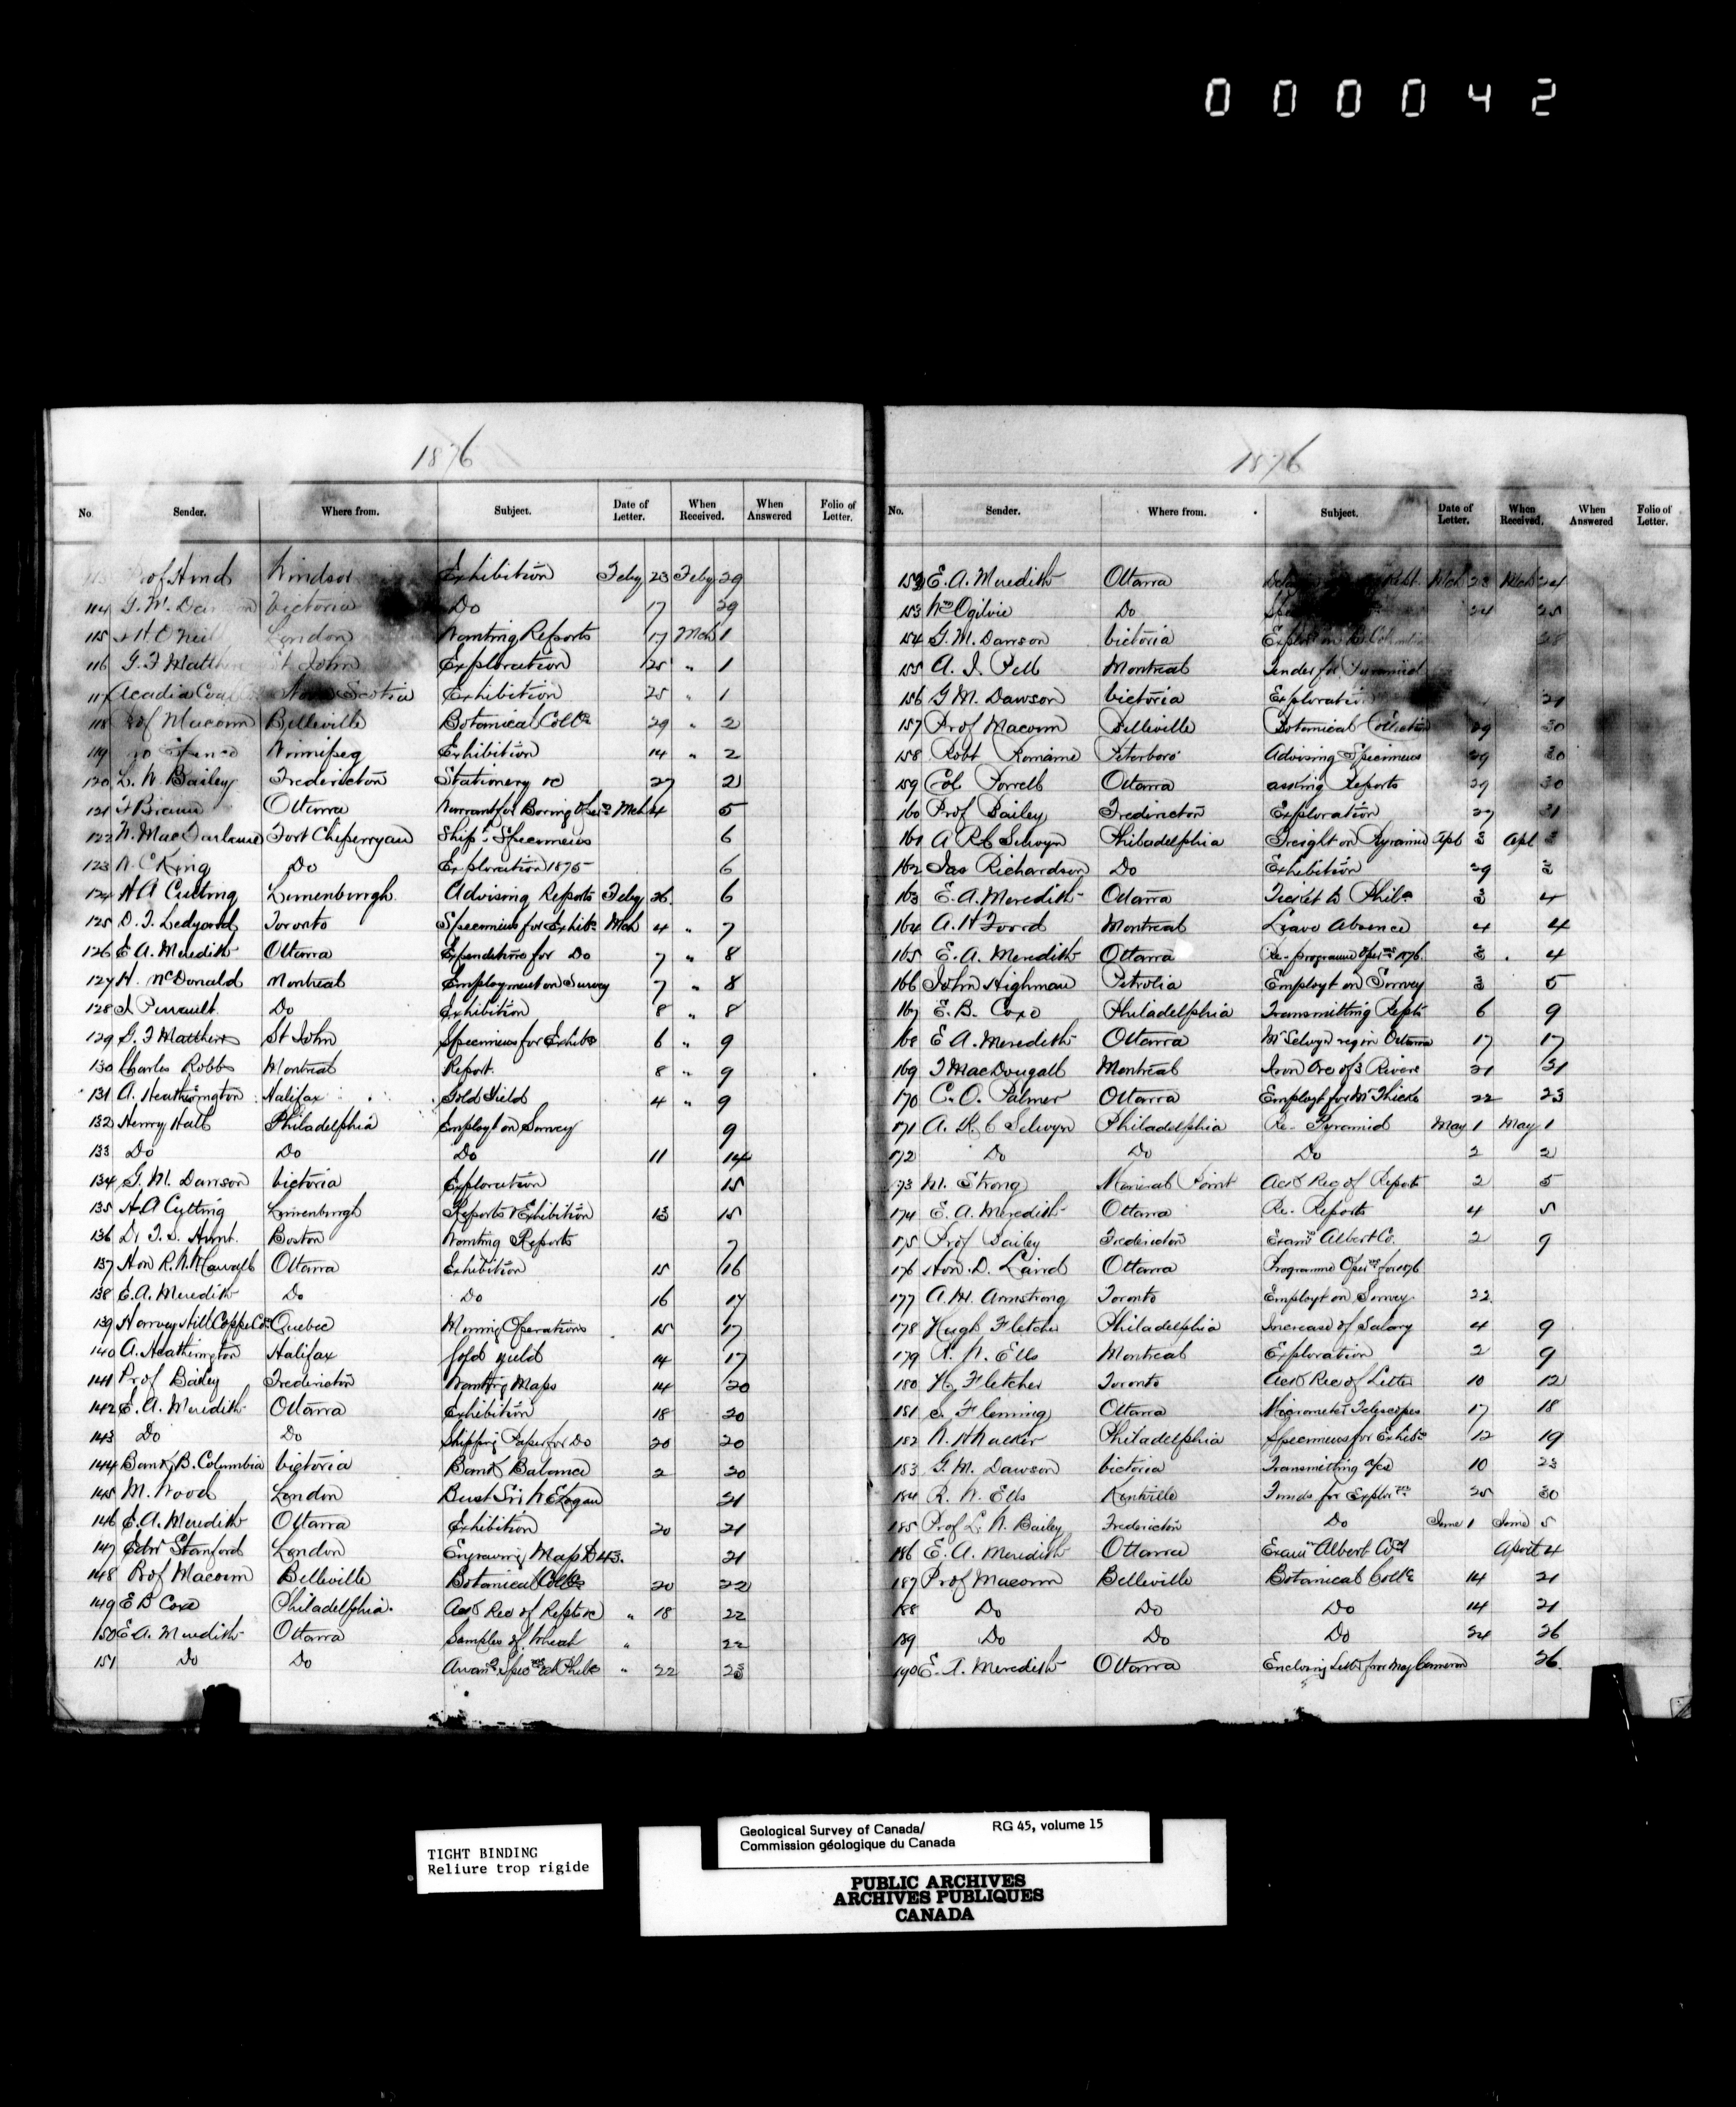 000042
1876
No. Sender. Where from. Subject. Date of Letter. When Received. When Answered Folio of Letter.
Prof Hind Windsor Exhibition Feby 23 Feby 29
114 G. M. Victoria Do 17 29
115 H O'Neil London Wanting Reports 17 Mch 1
116 G. F Matthew St John Exploration 25 " 1
117 Acadia Coal Nova Scotia Exhibition 25 " 1
118 Prof Macoun Belleville Botanical Coll 29 " 2
119 Winnipeg Exhibition 14 " 2
120 L. W. Bailey Fredericton Stationery &c 27 2
121 F Braun Ottawa Warrant for Boring Mch 4 5
122 Mac Farlane Fort Chiperryan Ship Specimens 6
123 W. C King Do Exploration 1875 6
124 H A Cutting Lunenburgh Advising Reports Feby 26. 6
125 D. F. Ledyard Toronto Specimens for Exhibn Mch 4 " 7
126 E A. Meredith Ottawa Expenditure for Do 7 " 8
127 H. McDonald Montreal Employment on Survey 7 " 8
128 Perrault Do Exhibition 8 " 8
129 G. F Matthew St John Specimens for Exhibn 6 " 9
130 Charles Robb Montreal Report. 8 " 9
131 A. Heatherington Halifax Gold Yield 4 " 9
132 Henry Hall Philadelphia Employt on Survey 9
133 Do Do Do 11 14
134 G. M. Dawson Victoria Exploration 15
135 H A Cutting Lunenburgh Reports & Exhibition 13 15
136 Dr T. S. Hunt. Boston Wanting Reports 7
137 Hon R. W. Ottawa Exhibition 15 16
138 E. A. Meredith Do Do 16 17
139 Harvey Hill Copper Co Quebec Mining Operations 15 17
140 A. Heatherington Halifax Gold yield 14 17
141 Prof Bailey Fredericton Wanting Maps 14 20
142 E. A. Meredith Ottawa Exhibition 18 20
143 Do Do Shipping Paper for Do 20 20
144 Bank B. Columbia Victoria Bank Balance 2 20
145 M. Wood London Bust Sir W E Logan 21
146 E. A. Meredith Ottawa Exhibition 20 21
147 Edw Stanford London Engraving Map £43. 21
148 Prof Macoun Belleville Botanical Colln 20 22
149 E B Coxe Philadelphia. Ackd Rec of Repts &c " 18 22
150 E. A. Meredith Ottawa Samples of Wheat " 22
151 Do Do " 22 23
1876
No. Sender. Where from. Subject. Date of Letter. When Received. When Answered Folio of Letter.
152 E. A. Meredith Ottawa Mch 23 Mch 24
153 Wm Ogilvie Do 24 25
154 G. M. Dawson Victoria 28
155 A. J. Pell Montreal Tender for Pyramid
156 G M. Dawson Victoria Exploration
157 Prof Macoun Belleville Botanical Collection 29 30
158 Robt Romaine Peterboro' Advising Specimens 29 30
159 Col Forrell Ottawa asking Reports 29 30
160 Prof Bailey Fredericton Exploration 27 31
161 A R C Selwyn Philadelphia Freight on Pyramid Apl 3 Apl 3
162 Jas Richardson Do Exhibition 29 3
163 E. A. Meredith Ottawa Ticket to Phila 3 4
164 A. H Foord Montreal Leave Absence 4 4
165 E. A. Meredith Ottawa Re- programme Opers 1876. 3 . 4
166 John Highman Petrolia Employt on Survey 3 5
167 E. B. Coxe Philadelphia Transmitting Repts 6 9
168 E A. Meredith Ottawa Mr Selwyn reqn in Ottawa 17 17
169 T MacDougall Montreal Iron Ore of 3 Rivers 21 21
170 C. O. Palmer Ottawa Employt for Mr Thicke 22 23
171 A. R. C Selwyn Philadelphia Re- Pyramid May 1 May 1
172 Do Do Do 2 2
173 M. Strong Mineral Point Ackd Reg of Reports 2 5
174 E. A. Meredith Ottawa Re- Reports 4 5
175 Prof Bailey Fredericton Examn Albert Co. 2 9
176 Hon. D. Laird Ottawa Programme Opers for 1876
177 A. H. Armstrong Toronto Employt on Survey. 22.
178 Hugh Fletcher Philadelphia Increase of Salary 4 9
179 R. W. Ells Montreal Exploration 2 9
180 H Fletcher Toronto Ackd Rec of Letter 10 12
181 S. Fleming Ottawa Micrometer Telescopes 17 18
182 Philadelphia Specimens for Exhibn 12 19
183 G. M. Dawson Victoria Transmitting a/cs 10 23
184 R. W. Ells Kentville Funds for Explorn 25 30
185 Prof L. W. Bailey Fredericton Do June 1 June 5
186 E. A. Meredith Ottawa Examn Albert Co April 4
187 Prof Macoun Belleville Botanical Colln 14 21
188 Do Do Do 14 21
189 Do Do Do 24 26
190 E. A. Meredith Ottawa Enclosing Letter from Maj Cameron 26.
TIGHT BINDING
Reliure trop rigide
Geological Survey of Canada/ RG 45, volume 15
Commission géologique du Canada
PUBLIC ARCHIVES
ARCHIVES PUBLIQUES
CANADA